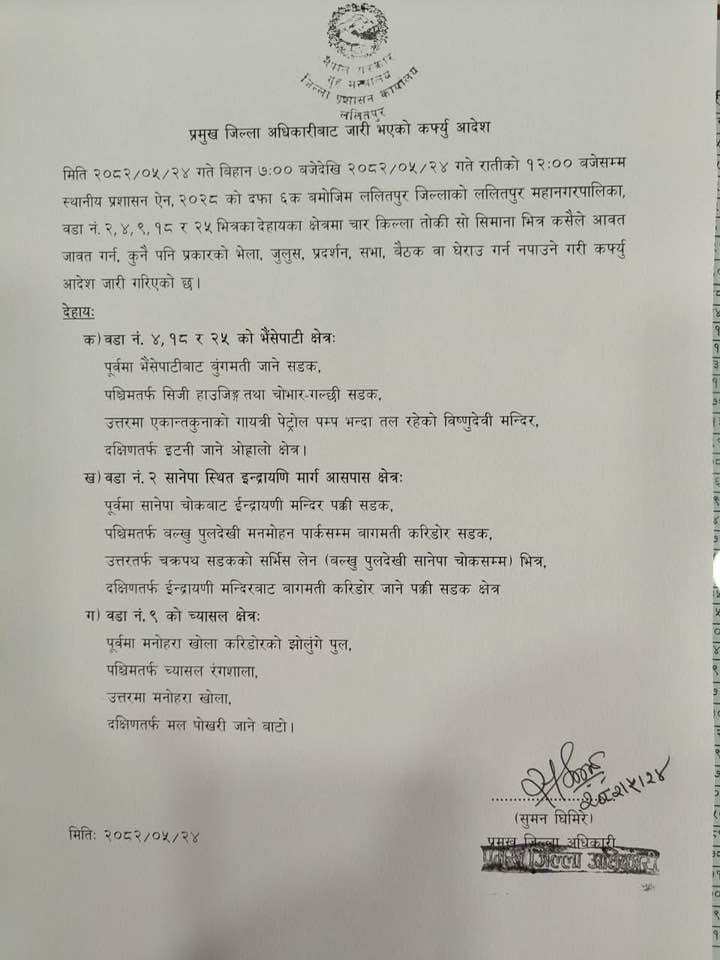 नेपाल सरकार
गृह मन्त्रालय
जिल्ला प्रशासन कार्यालय
ललितपुर
प्रमुख जिल्ला अधिकारीबाट जारी भएको कर्फ्यु आदेश
मिति २०८२/०५/२४ गते बिहान ७:०० बजेदेखि २०८२/०५/२४ गते रातीको १२:०० बजेसम्म
स्थानीय प्रशासन ऐन, २०२८ को दफा ६क बमोजिम ललितपुर जिल्लाको ललितपुर महानगरपालिका,
वडा नं. २, ४, ९, १८ र २५ भित्रका देहायका क्षेत्रमा चार किल्ला तोकी सो सिमाना भित्र कसैले आवत
जावत गर्न, कुनै पनि प्रकारको भेला, जुलुस, प्रदर्शन, सभा, बैठक वा घेराउ गर्न नपाउने गरी कर्फ्यु
आदेश जारी गरिएको छ।
देहायः
क) वडा नं. ४, १८ र २५ को भैंसेपाटी क्षेत्रः
पूर्वमा भैंसेपाटीबाट बुंगमती जाने सडक,
पश्चिमतर्फ सिजी हाउजिङ्ग तथा चोभार-गल्छी सडक,
उत्तरमा एकान्तकुनाको गायत्री पेट्रोल पम्प भन्दा तल रहेको विष्णुदेवी मन्दिर,
दक्षिणतर्फ इटनी जाने ओह्रालो क्षेत्र।
ख) वडा नं. २ सानेपा स्थित इन्द्रायणि मार्ग आसपास क्षेत्रः
पूर्वमा सानेपा चोकबाट ईन्द्रायणी मन्दिर पक्की सडक,
पश्चिमतर्फ बल्खु पुलदेखी मनमोहन पार्कसम्म वागमती करिडोर सडक,
उत्तरतर्फ चक्रपथ सडकको सर्भिस लेन (बल्खु पुलदेखी सानेपा चोकसम्म) भित्र,
दक्षिणतर्फ ईन्द्रायणी मन्दिरबाट वागमती करिडोर जाने पक्की सडक क्षेत्र
ग) वडा नं. ९ को च्यासल क्षेत्रः
पूर्वमा मनोहरा खोला करिडोरको झोलुंगे पुल,
पश्चिमतर्फ च्यासल रंगशाला,
उत्तरमा मनोहरा खोला,
दक्षिणतर्फ मल पोखरी जाने वाटो।
२०८२।५।२४
(सुमन घिमिरे)
मितिः २०८२/०५/२४
प्रमुख जिल्ला अधिकारी
प्रमुख जिल्ला अधिकारी